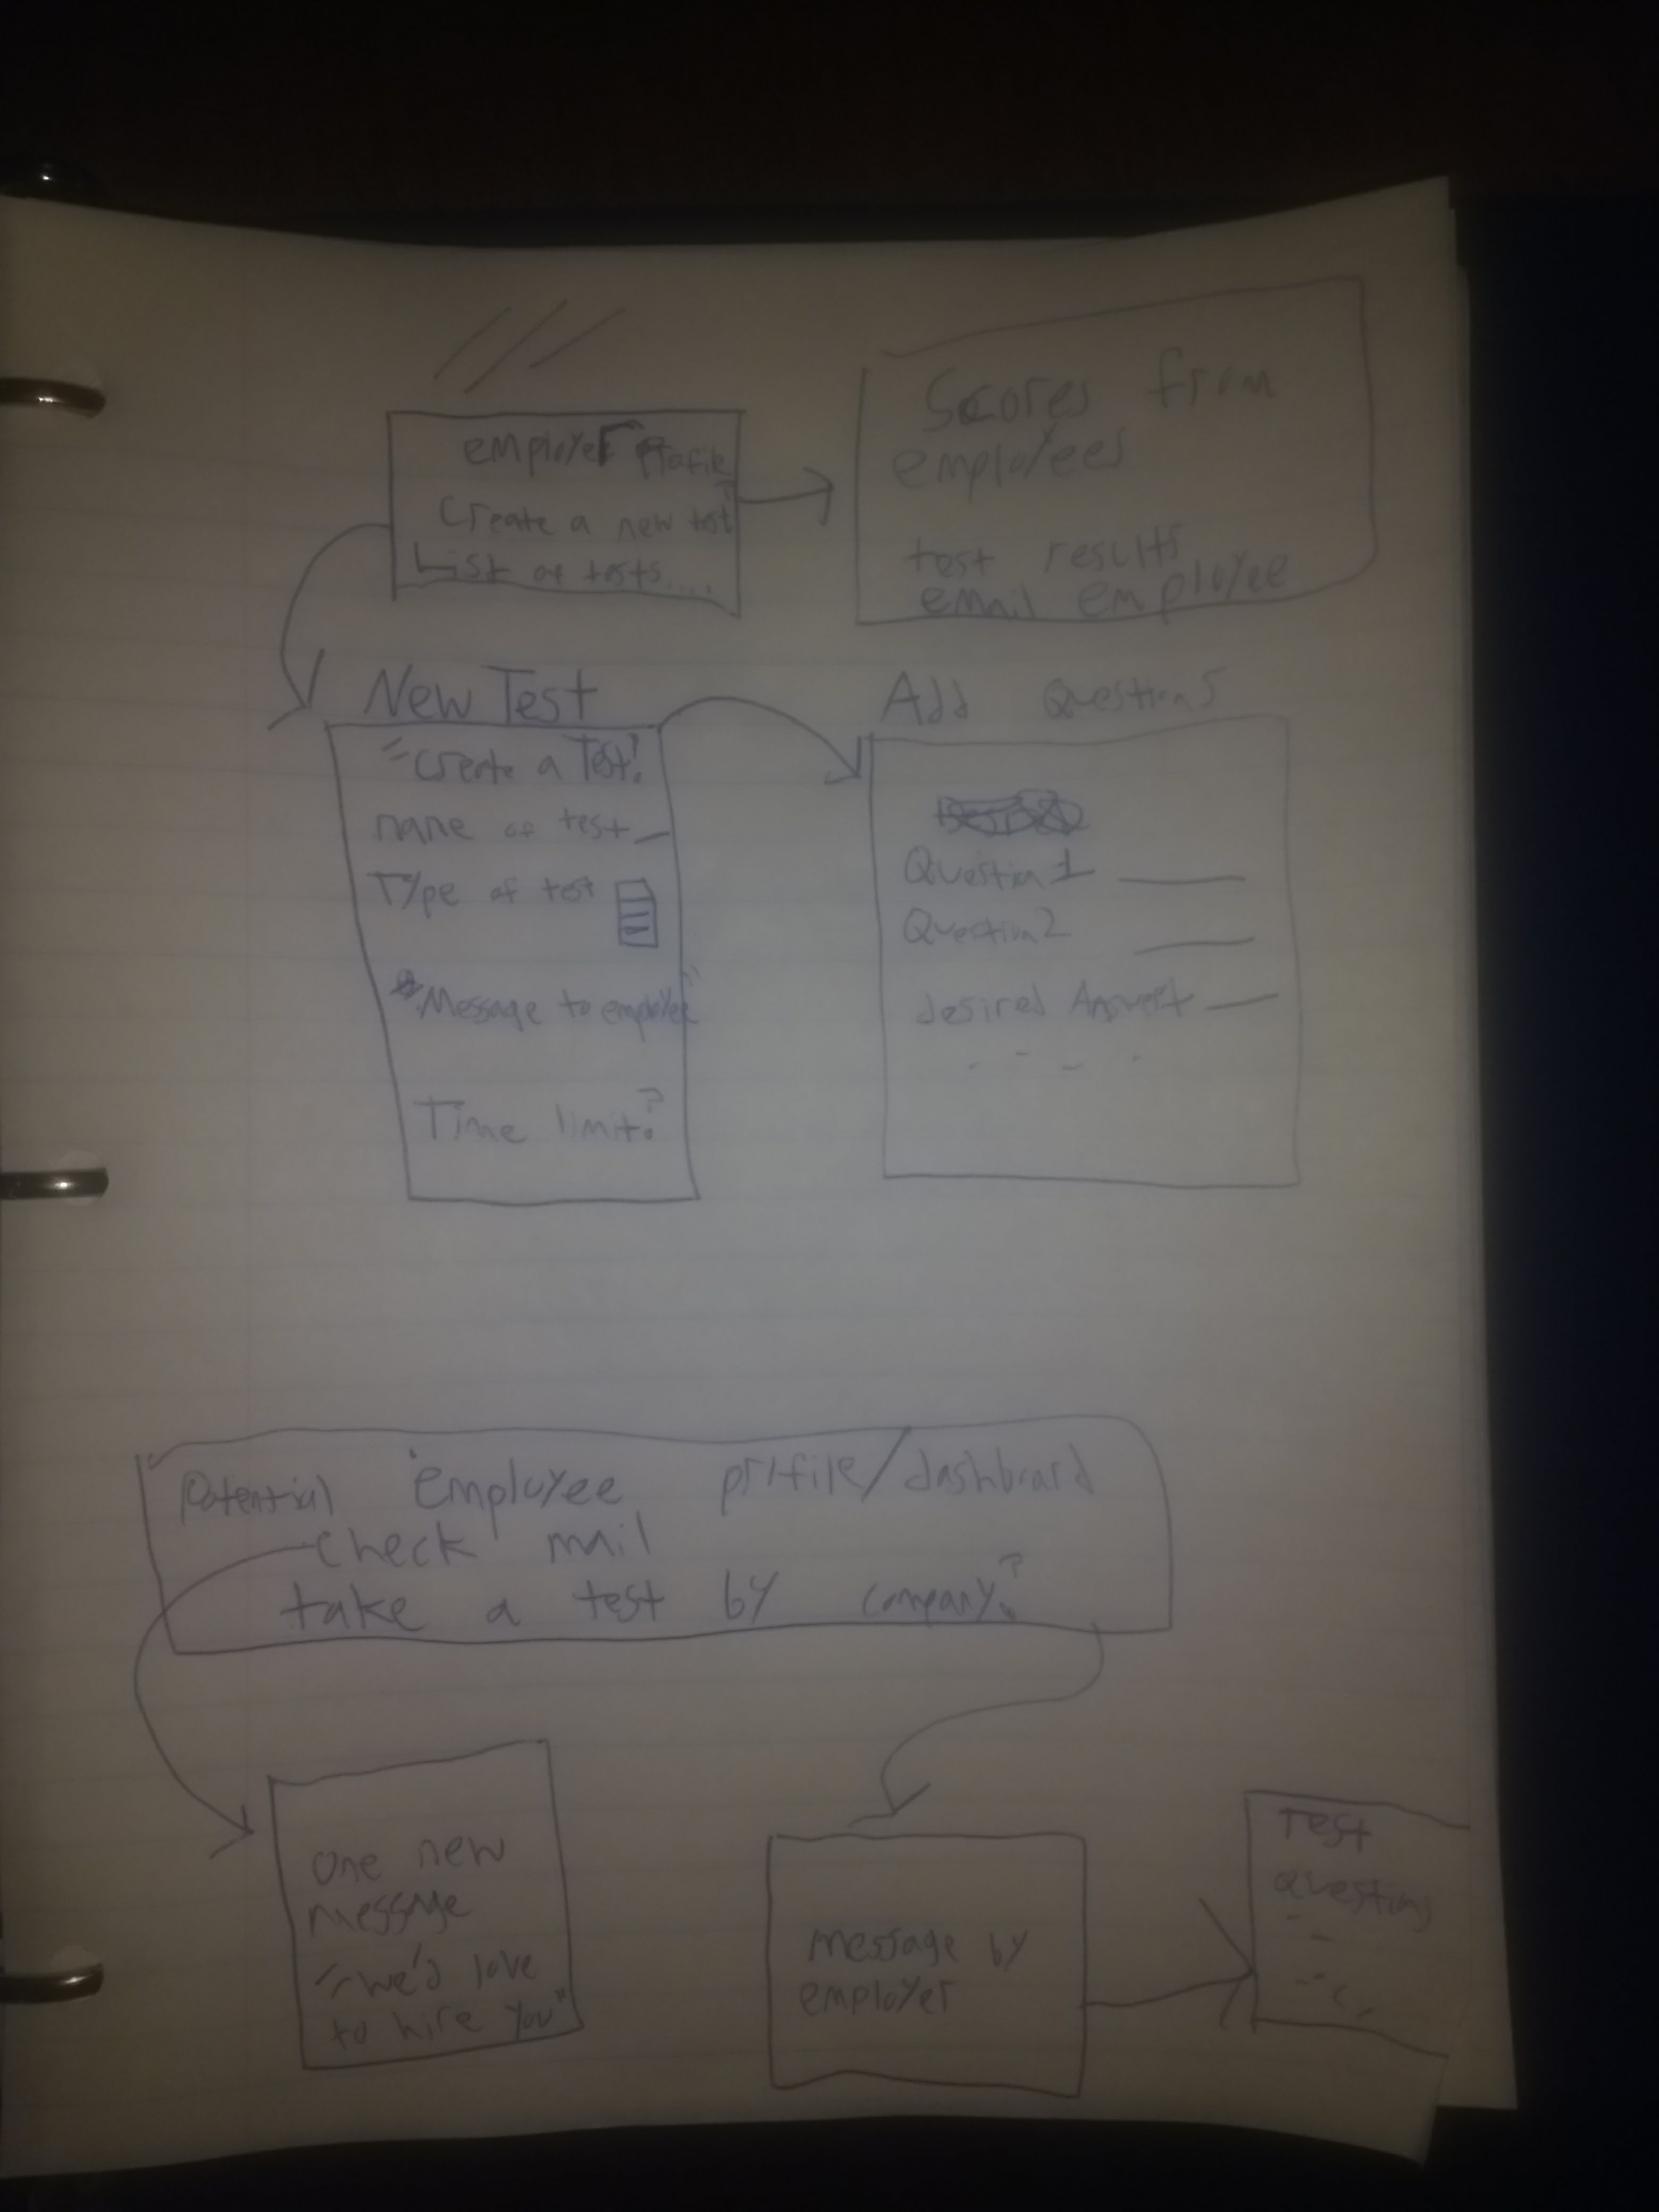 employer Profile
Create a new test
List of tests....
Scores from
employees
test results
email employee
New Test
"Create a Test!
name of test
Type of test
"Message to employee"
Time limit?
Add Questions
Question 1
Question 2
desired Answer
Potential employee profile/dashboard
check mail
take a test by company?
one new
message
"we'd love
to hire you"
message by
employer
Test
questions